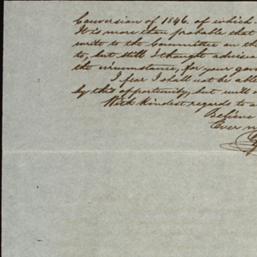 Conversion of 1846. of which
It is more than probable that
write to the Committee on the
to, but still I thought advisa
the circumstance, for your gov
I fear I shall not be able
by this opportunity, but will
With kindest regards to
Believe
Ever